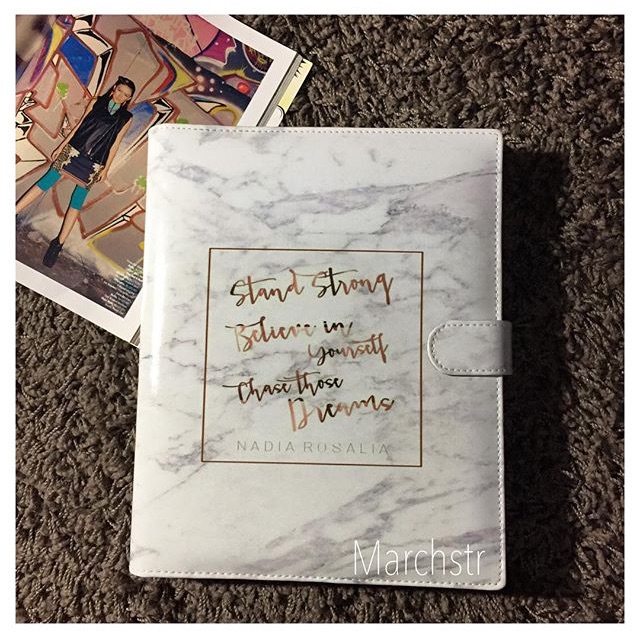 Stand Strong
Believe in
Yourself
Chase those
Dreams
NADIA ROSALIA
Marchstr